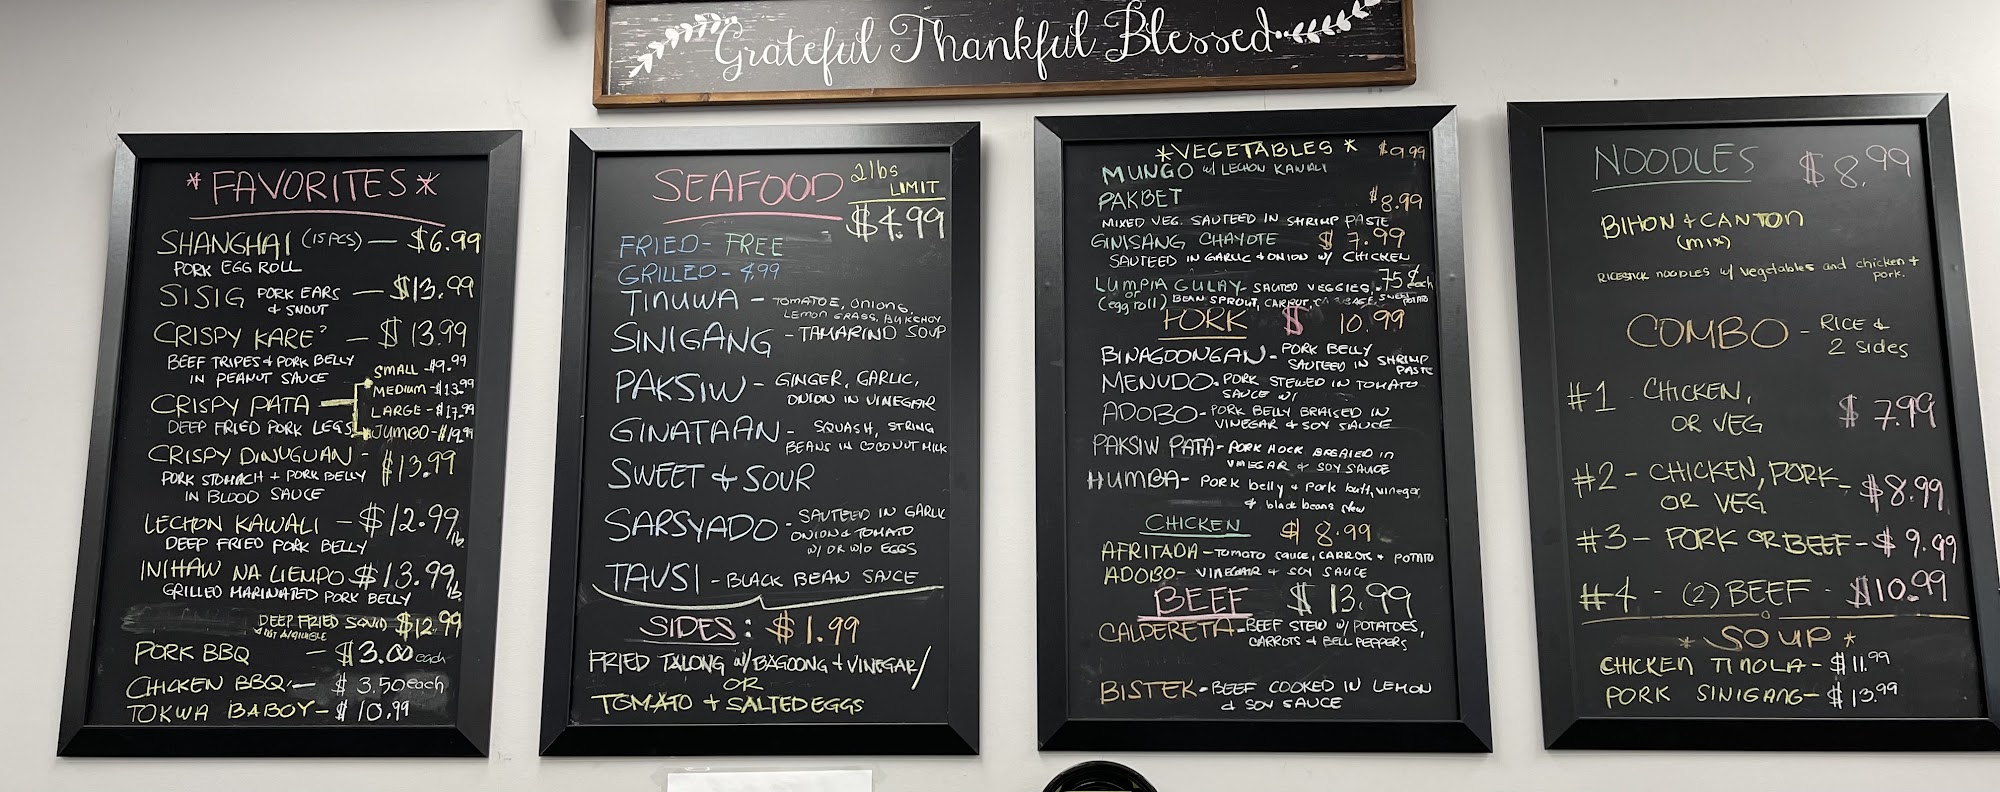 Grateful Thankful Blessed
* FAVORITES *
SHANGHAI (15 PCS) — $6.99
PORK EGG ROLL
SISIG PORK EARS & SNOUT — $13.99
CRISPY KARE² — $13.99
BEEF TRIPES + PORK BELLY
IN PEANUT SAUCE
CRISPY PATA
DEEP FRIED PORK LEGS
SMALL - $9.99
MEDIUM - $13.99
LARGE - $17.99
JUMBO - $19.99
CRISPY DINUGUAN - $13.99
PORK STOMACH + PORK BELLY
IN BLOOD SAUCE
LECHON KAWALI - $12.99 lb
DEEP FRIED PORK BELLY
INIHAW NA LIEMPO $13.99 lb
GRILLED MARINATED PORK BELLY
DEEP FRIED SQUID $12.99
PORK BBQ - $3.00 each
CHICKEN BBQ - $3.50 each
TOKWA BABOY - $10.99
SEAFOOD 2 lbs LIMIT
$4.99
FRIED - FREE
GRILLED - 4.99
TINUWA - TOMATOE, ONIONS,
LEMON GRASS, BUKCHOY
SINIGANG - TAMARIND SOUP
PAKSIW - GINGER, GARLIC,
ONION IN VINEGAR
GINATAAN - SQUASH, STRING
BEANS IN COCONUT MILK
SWEET & SOUR
SARSYADO - SAUTEED IN GARLIC
ONION & TOMATO
W/ OR W/O EGGS
TAUSI - BLACK BEAN SAUCE
SIDES: $1.99
FRIED TALONG w/ BAGOONG + VINEGAR/
OR
TOMATO + SALTED EGGS
* VEGETABLES * $9.99
MUNGO w/ LECHON KAWALI
PAKBET $8.99
MIXED VEG. SAUTEED IN SHRIMP PASTE
GINISANG CHAYOTE $7.99
SAUTEED IN GARLIC & ONION W/ CHICKEN
LUMPIA GULAY - SAUTED VEGGIES, .75¢ each
or (egg roll) BEAN SPROUT, CARROT, SWEET POTATO
PORK $10.99
BINAGOONGAN - PORK BELLY
SAUTEED IN SHRIMP PASTE
MENUDO - PORK STEWED IN TOMATO
SAUCE W/
ADOBO - PORK BELLY BRAISED IN
VINEGAR & SOY SAUCE
PAKSIW PATA - PORK HOCK BREAIED IN
VINEGAR & SOY SAUCE
HUMBA - PORK belly + Pork butt, vinegar
& black beans
CHICKEN $8.99
AFRITADA - TOMATO SAUCE, CARROTS + POTATO
ADOBO - VINEGAR + SOY SAUCE
BEEF $13.99
CALDERETA - BEEF STEW W/ POTATOES,
CARROTS & BELL PEPPERS
BISTEK - BEEF COOKED IN LEMON
& SOY SAUCE
NOODLES $8.99
BIHON + CANTON
(MIX)
RICESTICK NOODLES w/ vegetables and chicken +
pork.
COMBO - RICE &
2 sides
#1 CHICKEN,
OR VEG $7.99
#2 - CHICKEN, PORK
OR VEG - $8.99
#3 - PORK OR BEEF - $9.99
#4 - (2) BEEF - $10.99
* SOUP *
CHICKEN TINOLA - $11.99
PORK SINIGANG - $13.99